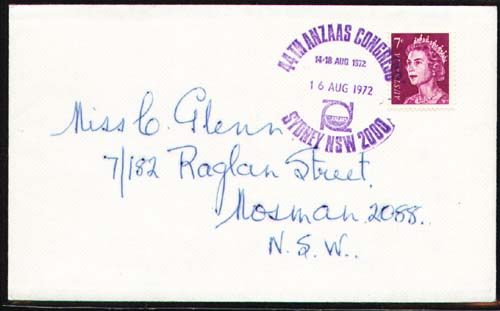 44TH ANZAAS CONGRESS
14-18 AUG 1972
16 AUG 1972
SYDNEY NSW 2000
7c
AUSTRALIA
Miss C. Glenn
7/182 Raglan Street.
Mosman 2088.
N.S.W..